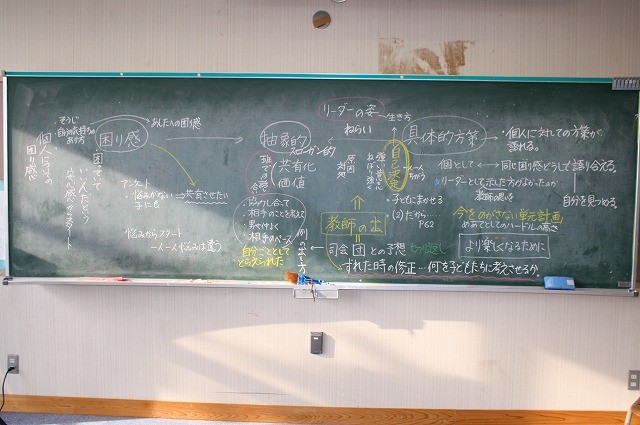 リーダーの姿
ねらい
生き方
そうじ
あんたへの困り感
困り感
抽象的
スローガン的
具体的方策
・個人に対しての方策が
語れる。
個人にとっての
困り感
困っていて
共有化
価値
自己決定
原因
対処
個として
同じ困り感どうしで語り合える。
リーダーとして示した方がよかったのか
自分を見つめる。
アンケート
・悩みがない
子にも
共有させたい
・協力し合って
・相手のことを考えて
・素早く
・相手のペース
・子どもにまかせる
(2)だから……
P62
教師の出
今をのがさない単元計画
めあてとしてのハードルの高さ
悩みからスタート
一人一人悩みは違う
自分ごととして
とらえられた
例の出し方
司会団との予想
切り返し
より楽しくなるために
ずれた時の修正…何を子どもたちに考えさせるか。